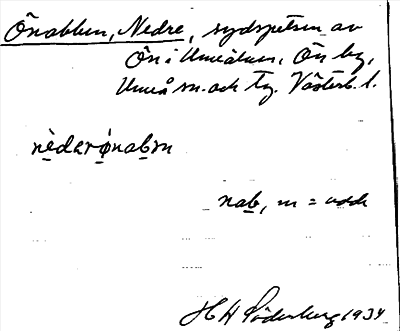 Önabben, Nedre, sydspetsen av
Ön i Umeälven, Ön by,
Umeå sn. och tg. Västerb. l.
nèdərǿnabm
nab, m = udde
H H Söderberg 1934